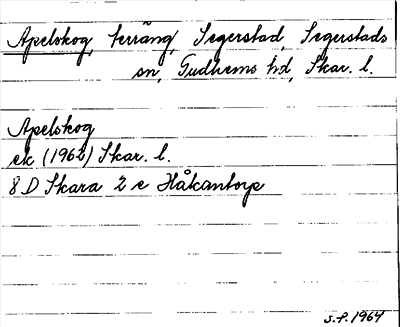 Apelskog, terräng, Segerstad, Segerstads
sn, Gudhems hd, Skar. l.
Apelskog
ek (1962) Skar. l.
8 D Skara 2 e Håkantorp
S.F. 1964